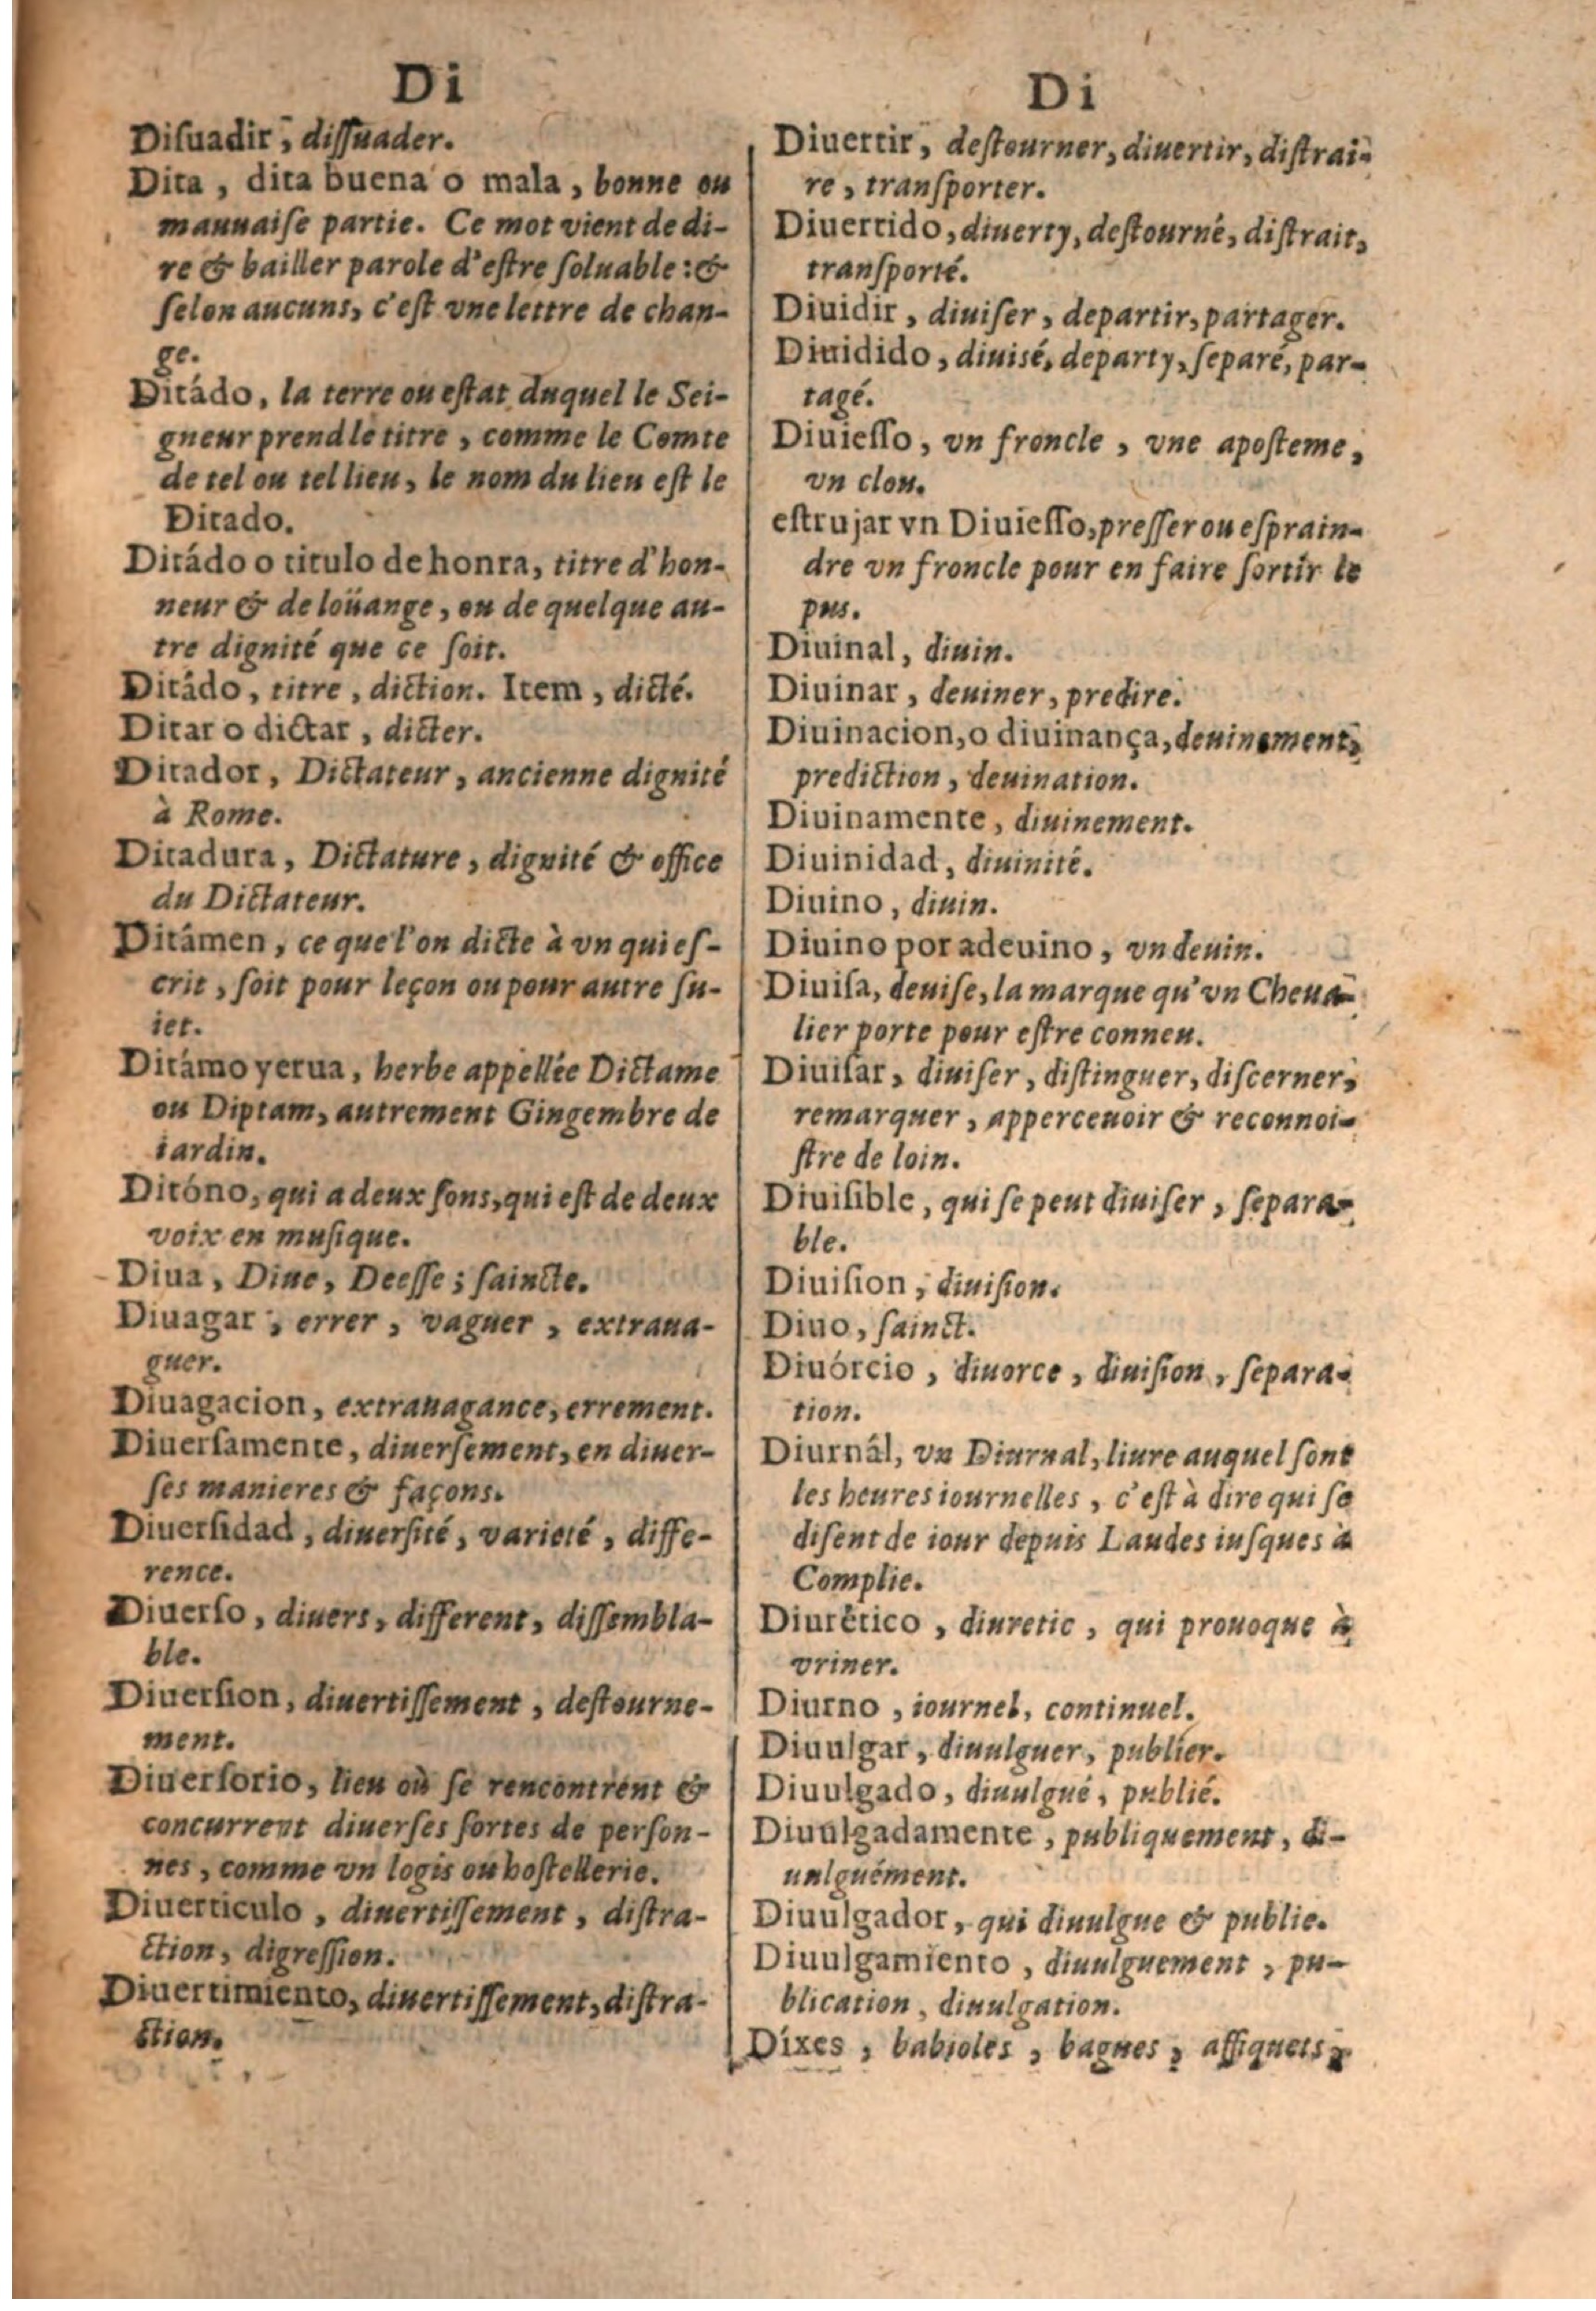 Di
Diſuadir, diſſuader.
Dita, dita buena o mala, bonne ou
mauuaiſe partie. Ce mot vient de di-
re & bailler parole d'eſtre ſoluable: &
ſelon aucuns, c'eſt vne lettre de chan-
ge.
Ditádo, la terre ou eſtat duquel le Sei-
gneur prend le titre, comme le Comte
de tel ou tel lieu, le nom du lieu eſt le
Ditado.
Ditádo o titulo de honra, titre d'hon-
neur & de loüange, ou de quelque au-
tre dignité que ce ſoit.
Ditádo, titre, diction. Item, dicté.
Ditar o dictar, dicter.
Ditador, Dictateur, ancienne dignité
à Rome.
Ditadura, Dictature, dignité & office
du Dictateur.
Ditámen, ce que l'on dicte à vn qui eſ-
crit, ſoit pour leçon ou pour autre ſu-
iet.
Ditámo yerua, herbe appellée Dictame
ou Diptam, autrement Gingembre de
iardin.
Ditóno, qui a deux ſons, qui eſt de deux
voix en muſique.
Diua, Diue, Deeſſe; ſaincte.
Diuagar, errer, vaguer, extraua-
guer.
Diuagacion, extrauagance, errement.
Diuerſamente, diuerſement, en diuer-
ſes manieres & façons.
Diuerſidad, diuerſité, varieté, diffe-
rence.
Diuerſo, diuers, different, diſſembla-
ble.
Diuerſion, diuertiſſement, deſtourne-
ment.
Diuerſorio, lieu où ſe rencontrent &
concurrent diuerſes ſortes de perſon-
nes, comme vn logis ou hoſtellerie.
Diuerticulo, diuertiſſement, diſtra-
ction, digreſſion.
Diuertimiento, diuertiſſement, diſtra-
ction.
Di
Diuertir, deſtourner, diuertir, diſtrai-
re, tranſporter.
Diuertido, diuerty, deſtourné, diſtrait,
tranſporté.
Diuidir, diuiſer, departir, partager.
Diuidido, diuisé, departy, ſeparé, par-
tagé.
Diuieſſo, vn froncle, vne apoſteme,
vn clou.
eſtrujar vn Diuieſſo, preſſer ou eſprain-
dre vn froncle pour en faire ſortir le
pus.
Diuinal, diuin.
Diuinar, deuiner, predire.
Diuinacion, o diuinança, deuinement,
prediction, deuination.
Diuinamente, diuinement.
Diuinidad, diuinité.
Diuino, diuin.
Diuino por adeuino, vn deuin.
Diuiſa, deuiſe, la marque qu'vn Cheua-
lier porte pour eſtre conneu.
Diuiſar, diuiſer, diſtinguer, diſcerner,
remarquer, apperceuoir & reconnoi-
ſtre de loin.
Diuiſible, qui ſe peut diuiſer, ſepara-
ble.
Diuiſion, diuiſion.
Diuo, ſainct.
Diuórcio, diuorce, diuiſion, ſepara-
tion.
Diurnâl, vn Diurnal, liure auquel ſont
les heures iournelles, c'eſt à dire qui ſe
diſent de iour depuis Laudes iuſques à
Complie.
Diurético, diuretic, qui prouoque à
vriner.
Diurno, iournel, continuel.
Diuulgar, diuulguer, publier.
Diuulgado, diuulgué, publié.
Diuulgadamente, publiquement, di-
uulguément.
Diuulgador, qui diuulgue & publie.
Diuulgamiento, diuulguement, pu-
blication, diuulgation.
Dixes, babioles, bagues, affiquets,